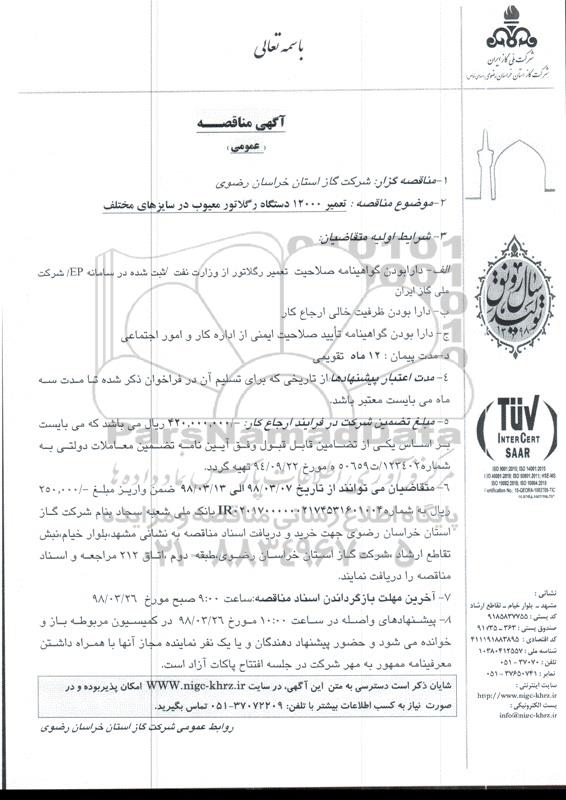 باسمه تعالی
شرکت ملی گاز ایران
شرکت گاز استان خراسان رضوی
آگهی مناقصـــه
(عمومی)
۱-مناقصه گزار: شرکت گاز استان خراسان رضوی
۲-موضوع مناقصه : تعمیر ۱۲۰۰۰ دستگاه رگلاتور معیوب در سایزهای مختلف
۳- شرایط اولیه متقاضیان:
الف- دارابودن گواهینامه صلاحیت تعمیر رگلاتور از وزارت نفت /ثبت شده در سامانه EP/ شرکت
ملی گاز ایران
ب- دارا بودن ظرفیت خالی ارجاع کار
ج- دارا بودن گواهینامه تأیید صلاحیت ایمنی از اداره کار و امور اجتماعی
د-مدت پیمان : ۱۲ ماه تقویمی
۴- مدت اعتبار پیشنهادها از تاریخی که برای تسلیم آن در فراخوان ذکر شده تا مدت سه
ماه می بایست معتبر باشد.
۵- مبلغ تضمین شرکت در فرآیند ارجاع کار: -/۴۲۰,۰۰۰,۰۰۰ ریال می باشد که می بایست
بر اساس یکی از تضامین قابل قبول وفق آیین نامه تضمین معاملات دولتی به
شماره۱۲۳۴۰۲/ت۵۰۶۵۹ ه مورخ ۹۴/۰۹/۲۲ تهیه گردد.
۶- متقاضیان می توانند از تاریخ ۹۸/۰۳/۰۷ الی ۹۸/۰۳/۱۳ ضمن واریز مبلغ -/۲۵۰,۰۰۰
ریال به شماره بانک ملی شعبه سجاد بنام شرکت گاز
استان خراسان رضوی جهت خرید و دریافت اسناد مناقصه به نشانی مشهد،بلوار خیام،نبش
تقاطع ارشاد ،شرکت گاز استان خراسان رضوی،طبقه دوم ،اتاق ۲۱۲ مراجعه و اسناد
مناقصه را دریافت نمایند.
۷- آخرین مهلت بازگرداندن اسناد مناقصه:ساعت ۹:۰۰ صبح مورخ ۹۸/۰۳/۲۶
۸- پیشنهادهای واصله در ساعت ۱۰:۰۰ مورخ ۹۸/۰۳/۲۶ در کمیسیون مربوطه باز و
خوانده می شود و حضور پیشنهاد دهندگان و یا یک نفر نماینده مجاز آنها با همراه داشتن
معرفینامه ممهور به مهر شرکت در جلسه افتتاح پاکات آزاد است.
شایان ذکر است دسترسی به متن این آگهی، در سایت WWW.nigc-khrz.ir امکان پذیربوده و در
صورت نیاز به کسب اطلاعات بیشتر با تلفن: ۳۷۰۷۲۲۰۹-۰۵۱ تماس بگیرید.
روابط عمومی شرکت گاز استان خراسان رضوی
TÜV
INTERCERT
SAAR
ISO 9001:2015; ISO 14001:2015
نشانی :
مشهد - بلوار خیام - تقاطع ارشاد
کد پستی : ۹۱۸۵۸۳۷۷۵۵
صندوق پستی : ۳۶۳ - ۹۱۷۳۵
کد اقتصادی : ۴۱۱۱۹۱۸۸۳۸۹۵
شناسه ملی : ۱۰۳۸۰۴۱۲۵۵۷
تلفن : ۳۷۰۷۰ - ۰۵۱
نمابر : ۳۷۶۵۰۷۴۱ - ۰۵۱
سایت اینترنتی :
http://www.nigc-khrz.ir
پست الکترونیکی :
info@nigc-khrz.ir
ParsNamadData